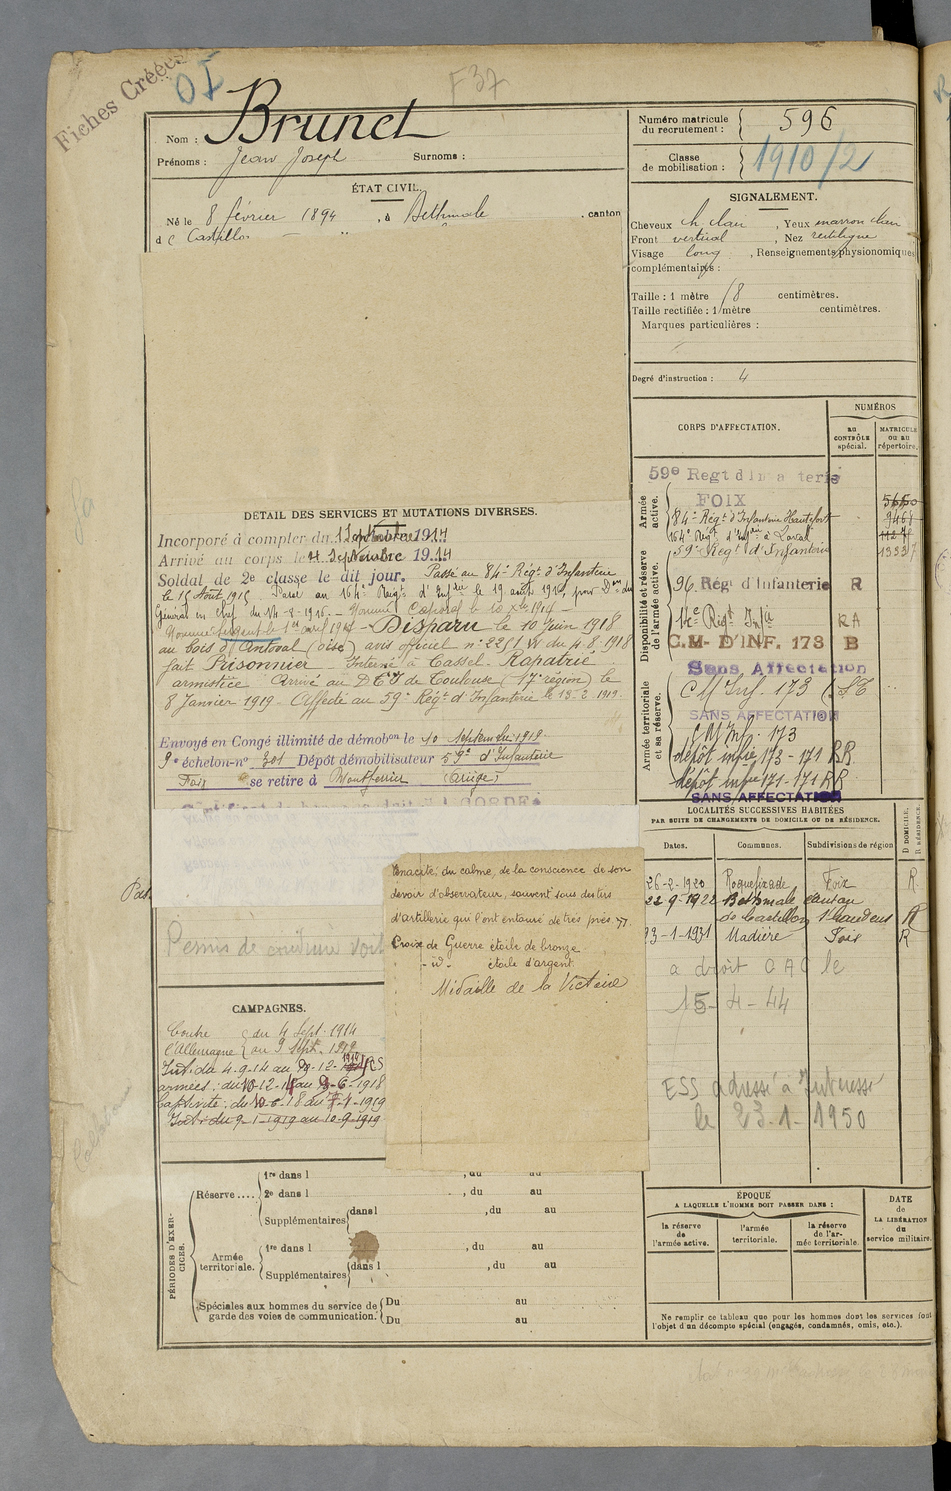 Fiches Créées
OI
F 37
Nom : Brunet
Prénoms : Jean Joseph Surnoms :
ÉTAT CIVIL.
Né le 8 février 1894, à Bethmale, canton
d e Castillon
DÉTAIL DES SERVICES ET MUTATIONS DIVERSES.
Incorporé à compter du 1 Septembre 1914
Arrivé au corps le 4 Septembre 1914
Soldat de 2e classe le dit jour. Passé au 84e Régt d'Infanterie
le 15 Août 1915 Passé au 164e Régt d'Infrie le 19 août 1916, pour Don du
Général en Chef du 14-8-1916. - Nommé Caporal le 10 Xbre 1914 -
Nommé Sergent le 1er avril 1917 - Disparu le 10 Juin 1918
au bois d'Antoval (Oise) avis officiel n° 2251 W du 4.8.1918
fait Prisonnier - Interné à Cassel - Rapatrié
armistice Arrivé au DCI de Toulouse (17e région) le
8 Janvier 1919 - Affecté au 59e Régt d'Infanterie le 13-2-1919
Envoyé en Congé illimité de démobon le 10 Septembre 1919
9e échelon-n° 301 Dépôt démobilisateur 59e d'Infanterie
Foix se retire à Montferrier (Ariège)
Permis de conduire
tenacité, du calme, de la conscience de son
devoir d'observateur, souvent sous des tirs
d'artillerie qui l'ont entouré de très près. »
Croix de Guerre étoile de bronze
- id - étoile d'argent
Médaille de la Victoire
CAMPAGNES.
Contre du 4 Sept. 1914
l'Allemagne au 9 Sept. 1919
Int: du 4-9-14 au
armées: du
Captivité: du
Int: du 9-1-1919 au 10-9-1919
PÉRIODES D'EXERCICES.
Réserve.... 1re dans l , du au
2e dans l , du au
Supplémentaires dans l , du au
Armée territoriale. 1re dans l , du au
Supplémentaires dans l , du au
Spéciales aux hommes du service de garde des voies de communication. Du au
Du au
Numéro matricule du recrutement : 596
Classe de mobilisation : 1910/2
SIGNALEMENT.
Cheveux ch. clair, Yeux marron clair
Front vertical, Nez rectiligne
Visage long, Renseignements physionomiques
complémentaires :
Taille : 1 mètre 78 centimètres.
Taille rectifiée : 1 mètre centimètres.
Marques particulières :
Degré d'instruction : 4
CORPS D'AFFECTATION.
NUMÉROS
au CONTRÔLE spécial.
MATRICULE ou au répertoire.
Armée active.
59e Regt d'Infanterie
FOIX
84e Régt d'Infanterie Hautefort
164e Régt d'Infrie à Laval
59e Régt d'Infanterie
Disponibilité et réserve de l'armée active.
96 Rég d'Infanterie R
14e Régt Infie RA
C.M- D'INF. 173 B
Sans Affectation
Armée territoriale et sa réserve.
C M Inf. 173
SANS AFFECTATION
C M Inf. 173
dépôt infie 173 - 171 RR
dépôt infie 171-171 RR
SANS AFFECTATION
LOCALITÉS SUCCESSIVES HABITÉES
PAR SUITE DE CHANGEMENTS DE DOMICILE OU DE RÉSIDENCE.
D. DOMICILE. R. RÉSIDENCE.
Dates. Communes. Subdivisions de région
26-2-1920 Roquefixade Foix R
22-9-1922 Bethmale canton
de Castillon St Gaudens R
23-1-1931 Madière Foix R
a droit CAC le
15-4-44
ESS adressé à Intéressé
le 23.1.1950
ÉPOQUE
A LAQUELLE L'HOMME DOIT PASSER DANS :
DATE de LA LIBÉRATION du service militaire.
la réserve de l'armée active.
l'armée territoriale.
la réserve de l'armée territoriale.
Ne remplir ce tableau que pour les hommes dont les services font
l'objet d'un décompte spécial (engagés, condamnés, omis, etc.).